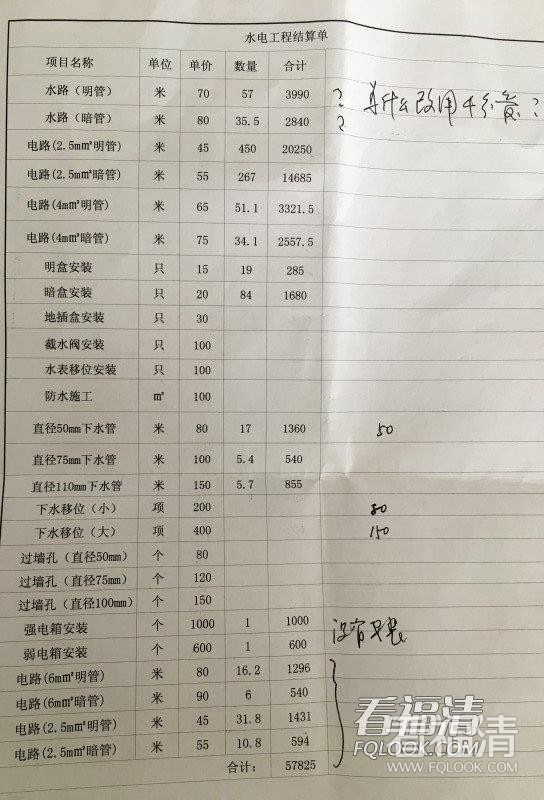 水电工程结算单
项目名称 单位 单价 数量 合计
水路（明管） 米 70 57 3990 ?
水路（暗管） 米 80 35.5 2840 ?
为什么改用 ?
电路(2.5m㎡明管) 米 45 450 20250
电路(2.5m㎡暗管) 米 55 267 14685
电路(4m㎡明管) 米 65 51.1 3321.5
电路(4m㎡暗管) 米 75 34.1 2557.5
明盒安装 只 15 19 285
暗盒安装 只 20 84 1680
地插盒安装 只 30
截水阀安装 只 100
水表移位安装 只 100
防水施工 ㎡ 100
直径50mm下水管 米 80 17 1360 50
直径75mm下水管 米 100 5.4 540
直径110mm下水管 米 150 5.7 855
下水移位（小） 项 200 80
下水移位（大） 项 400 150
过墙孔（直径50mm） 个 80
过墙孔（直径75mm） 个 120
过墙孔（直径100mm） 个 150
强电箱安装 个 1000 1 1000 没有
弱电箱安装 个 600 1 600
电路(6m㎡明管) 米 80 16.2 1296
电路(6m㎡暗管) 米 90 6 540
电路(2.5m㎡明管) 米 45 31.8 1431
电路(2.5m㎡暗管) 米 55 10.8 594
合计： 57825
看福清
FQLOOK.COM
看福清
WWW.FQLOOK.COM